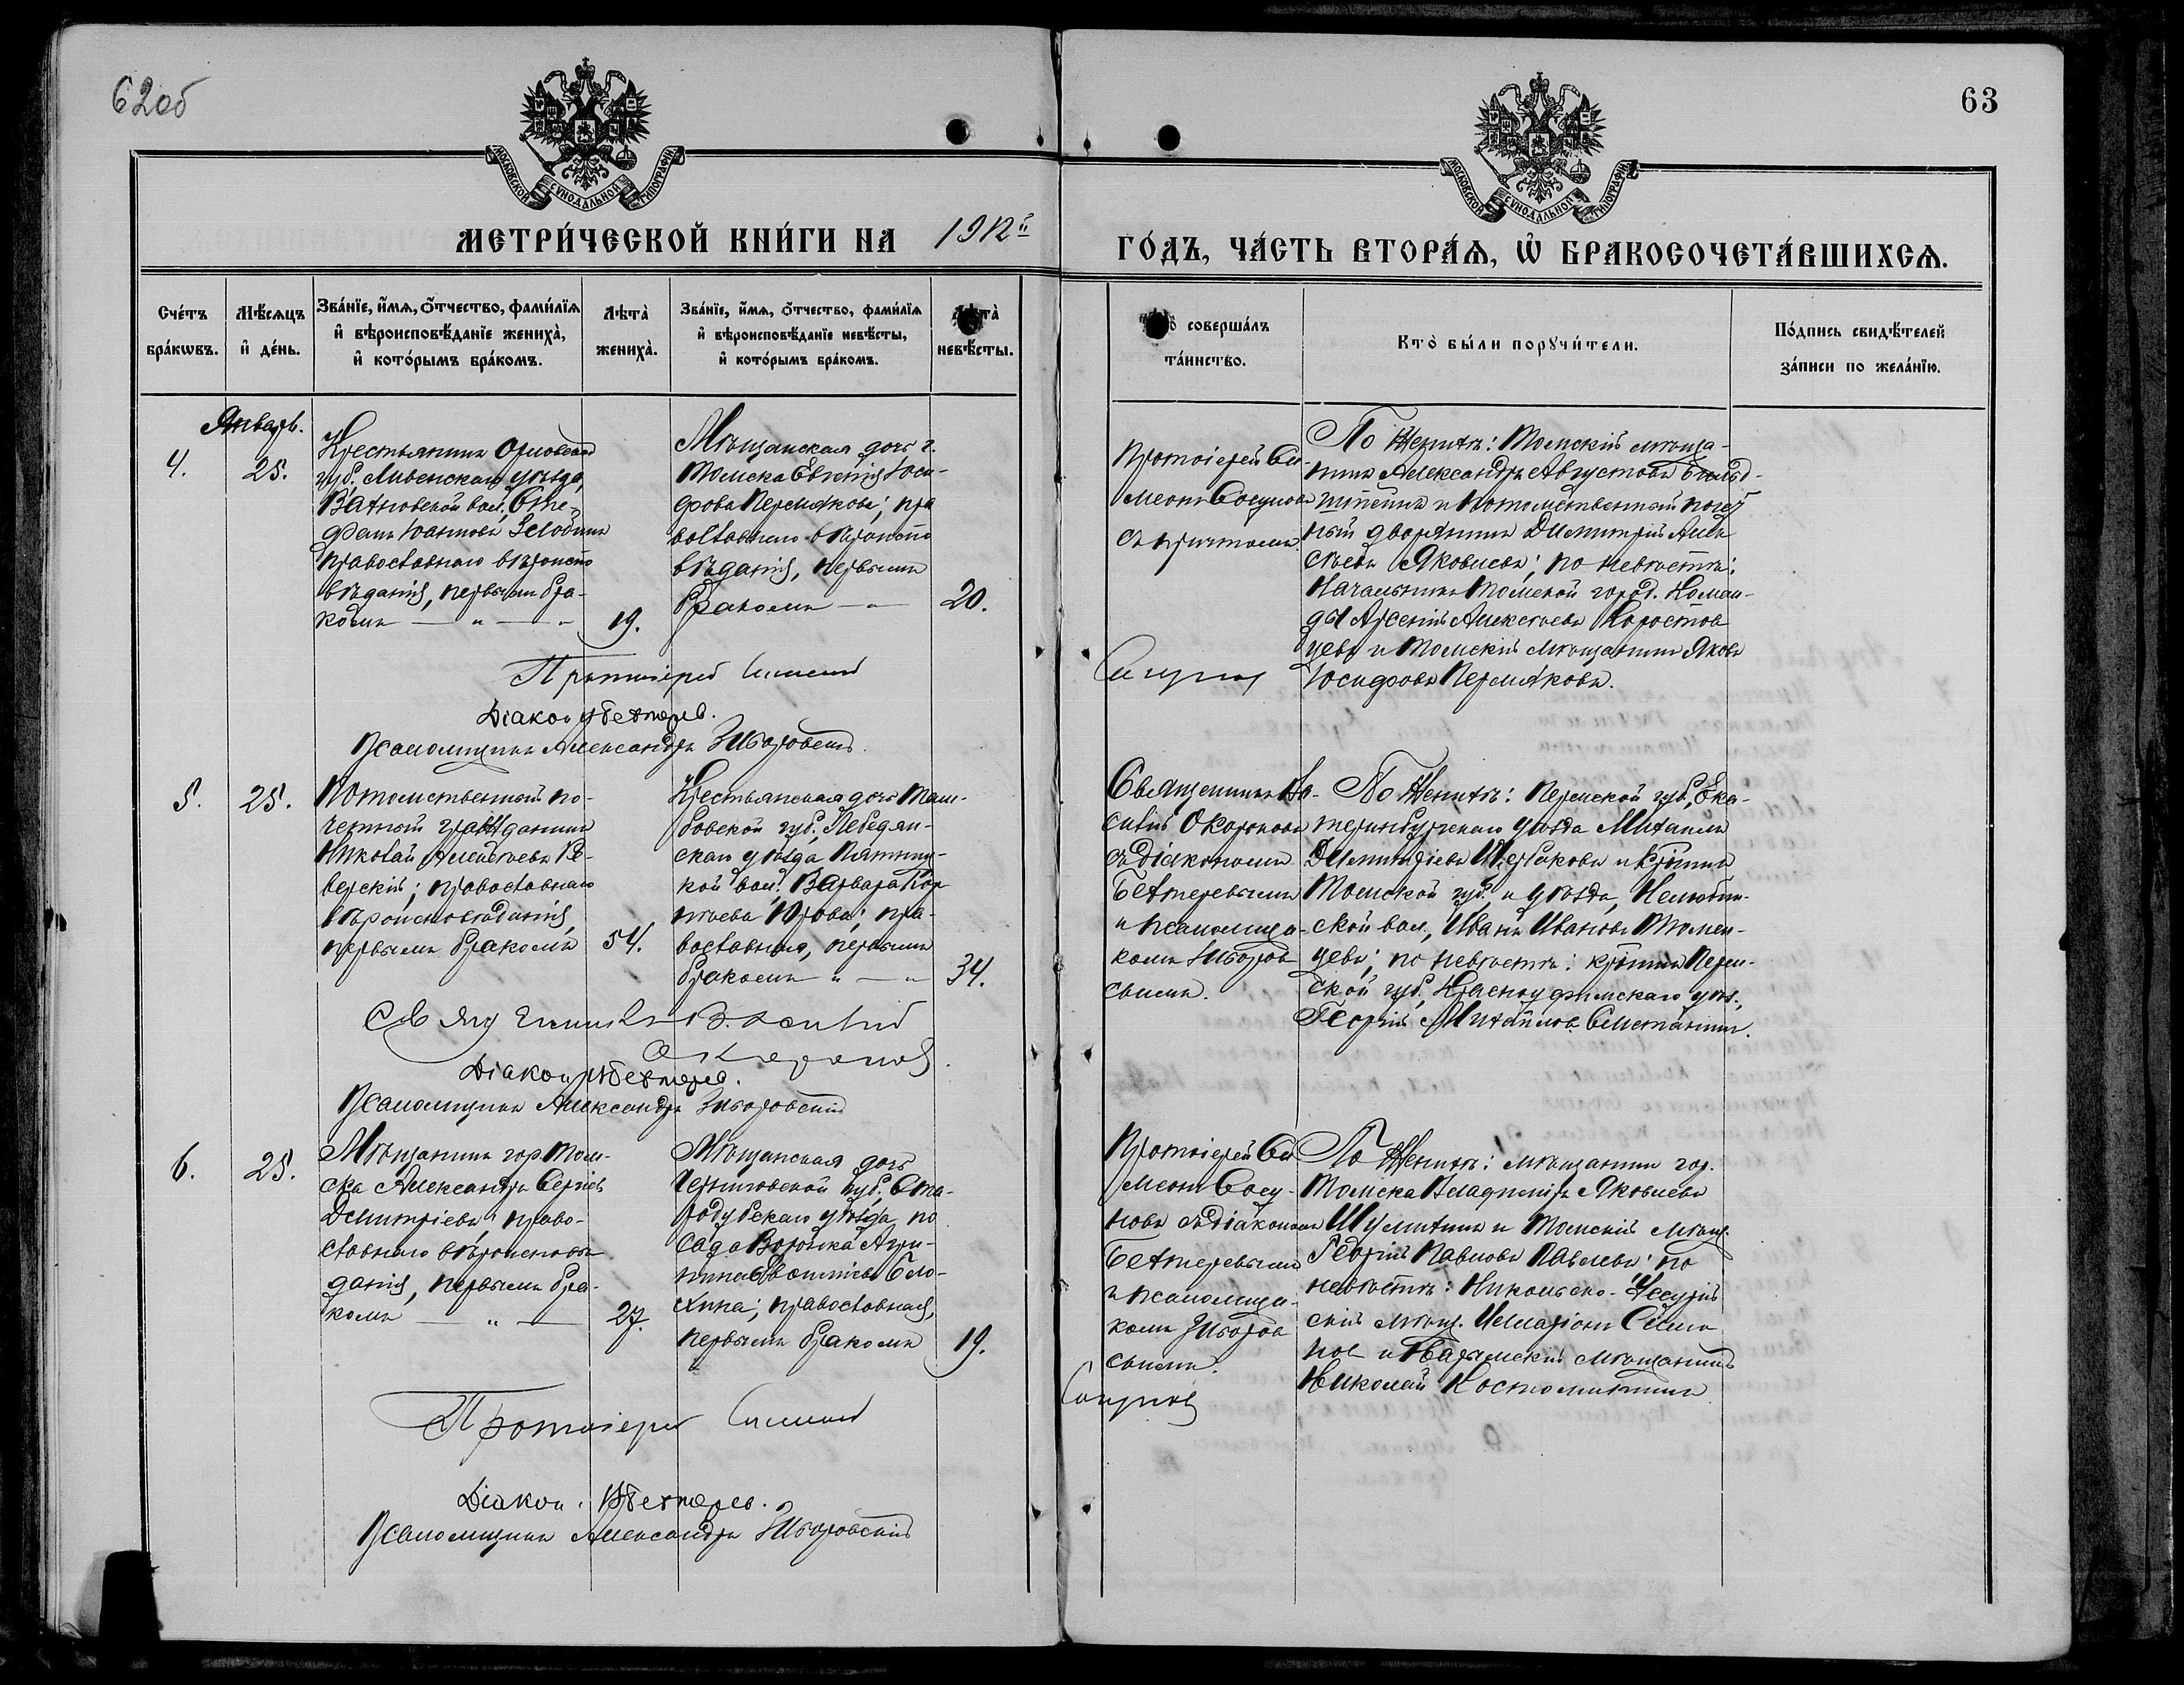 62об
63
МОСКОВСКОЙ СѴНОДАЛЬНОЙ ТИПОГРАФІИ
МОСКОВСКОЙ СѴНОДАЛЬНОЙ ТИПОГРАФІИ
МЕТРИ́ЧЕСКОЙ КНИ́ГИ НА 1912й
ГО́ДЪ, ЧА́СТЬ ВТОРА́Ѧ, Ѽ БРАКОСОЧЕТА́ВШИХСѦ.
Сче́тъ бра́кѡвъ.
Мѣ́сѧцъ и҆ де́нь.
Зва́нїе, и҆́мѧ, ѻ҆́тчество, фами́лїѧ
и҆ вѣроисповѣ́данїе жениха̀,
и҆ кото́рымъ бра́комъ.
Лѣта̀ жениха̀.
Зва́нїе, и҆́мѧ, ѻ҆́тчество, фами́лїѧ
и҆ вѣроисповѣ́данїе невѣ́сты,
и҆ кото́рымъ бра́комъ.
невѣ́сты.
соверша́лъ
та́инство.
Кто̀ бы́ли порꙋчи́тели.
По́дпись свидѣ́телей
за́писи по жела́нїю.
Январь.
4.
25.
Крестьянинъ Орловской
губ. Ливенскаго уѣзда,
вол., Сте-
фанъ Іоанновъ Злобинъ
православнаго вѣроиспо
вѣданія, первымъ бра-
комъ — " — "
19.
Мѣщанская дочь г.
Томска Евгенія Іоси-
фова Пермякова; пра
вославнаго вѣроиспо
вѣданія, первымъ
бракомъ — "
20.
Протоіерей Си-
меонъ Сосуновъ
съ причтомъ.
По Женихѣ: Томскій мѣща-
нинъ Александръ Августовъ
штейнъ и Потомственный почет
ный дворянинъ Димитрій Алек
сѣевъ Яковлевъ; по невѣстѣ:
Начальникъ Томской город. Коман-
ды Арсеній Алексѣевъ Коростов
цевъ и Томскій мѣщанинъ Яковъ
Іосифовъ Пермяковъ.
Протоіерей Симеонъ Сосуновъ
Діаконъ Бехтеревъ.
Псаломщикъ Александръ Зиборовскій
5.
25.
Потомственный по-
четный гражданинъ
Николай Алексѣевъ Ве-
верскій; православнаго
вѣроисповѣданія,
первымъ бракомъ
54.
Крестьянская дочь Там-
бовской губ., Лебедян-
скаго уѣзда
кой вол. Варвара Кор
нѣева пра-
вославная, первымъ
бракомъ " — "
34.
Священникъ Ва-
силій Окороковъ
съ діакономъ
Бехтеревымъ
и псаломщи-
комъ Зиборов
скимъ.
По Женихѣ: Пермской губ., Ека-
теринбургскаго уѣзда Михаилъ
Димитріевъ Щербаковъ и кр-нинъ
Томской губ. и уѣзда, Нелюбин-
ской вол., Иванъ Ивановъ Томен-
цевъ; по невѣстѣ: кр-нинъ Перм-
ской губ., Красноуфимскаго уѣз.,
Георгій Михайловъ Сметанинъ.
Священникъ Василій
Окороковъ
Діаконъ Бехтеревъ.
Псаломщикъ Александръ Зиборовскій
6.
25.
Мѣщанинъ гор. Том-
ска Александръ Сергіевъ
Димитріевъ; право-
славнаго вѣроисповѣ
данія, первымъ бра-
комъ — " —
27.
Мѣщанская дочь
Черниговской губ. Ста-
родубскаго уѣзда, по
сада Воронка Агри-
пина
православная,
первымъ бракомъ
19.
Протоіерей Си
меонъ Сосу-
новъ съ діакономъ
Бехтеревымъ
и псаломщи-
комъ Зиборов
скимъ.
По Женихѣ: мѣщанинъ гор.
Томска Владиміръ Яковлевъ
Шумихинъ и Томскій мѣщ.
Георгій Павловъ Павловъ; по
невѣстѣ: Никольско-Уссурій
скій мѣщ. Илларіонъ
и Нарымскій мѣщанинъ
Николай Костомахинъ
Протоіерей Симеонъ Сосуновъ
Діаконъ Бехтеревъ.
Псаломщикъ Александръ Зиборовскій